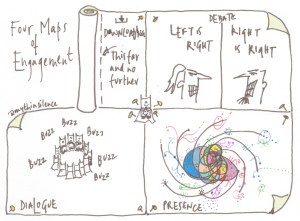 Four Maps
of
Engagement
DOWNLOADING
This far
and no
further
DEBATE
LEFT IS
RIGHT
RIGHT
IS RIGHT
Buzz
Buzz
Buzz
Buzz
Buzz
Buzz
Buzz
DIALOGUE
PRESENCE